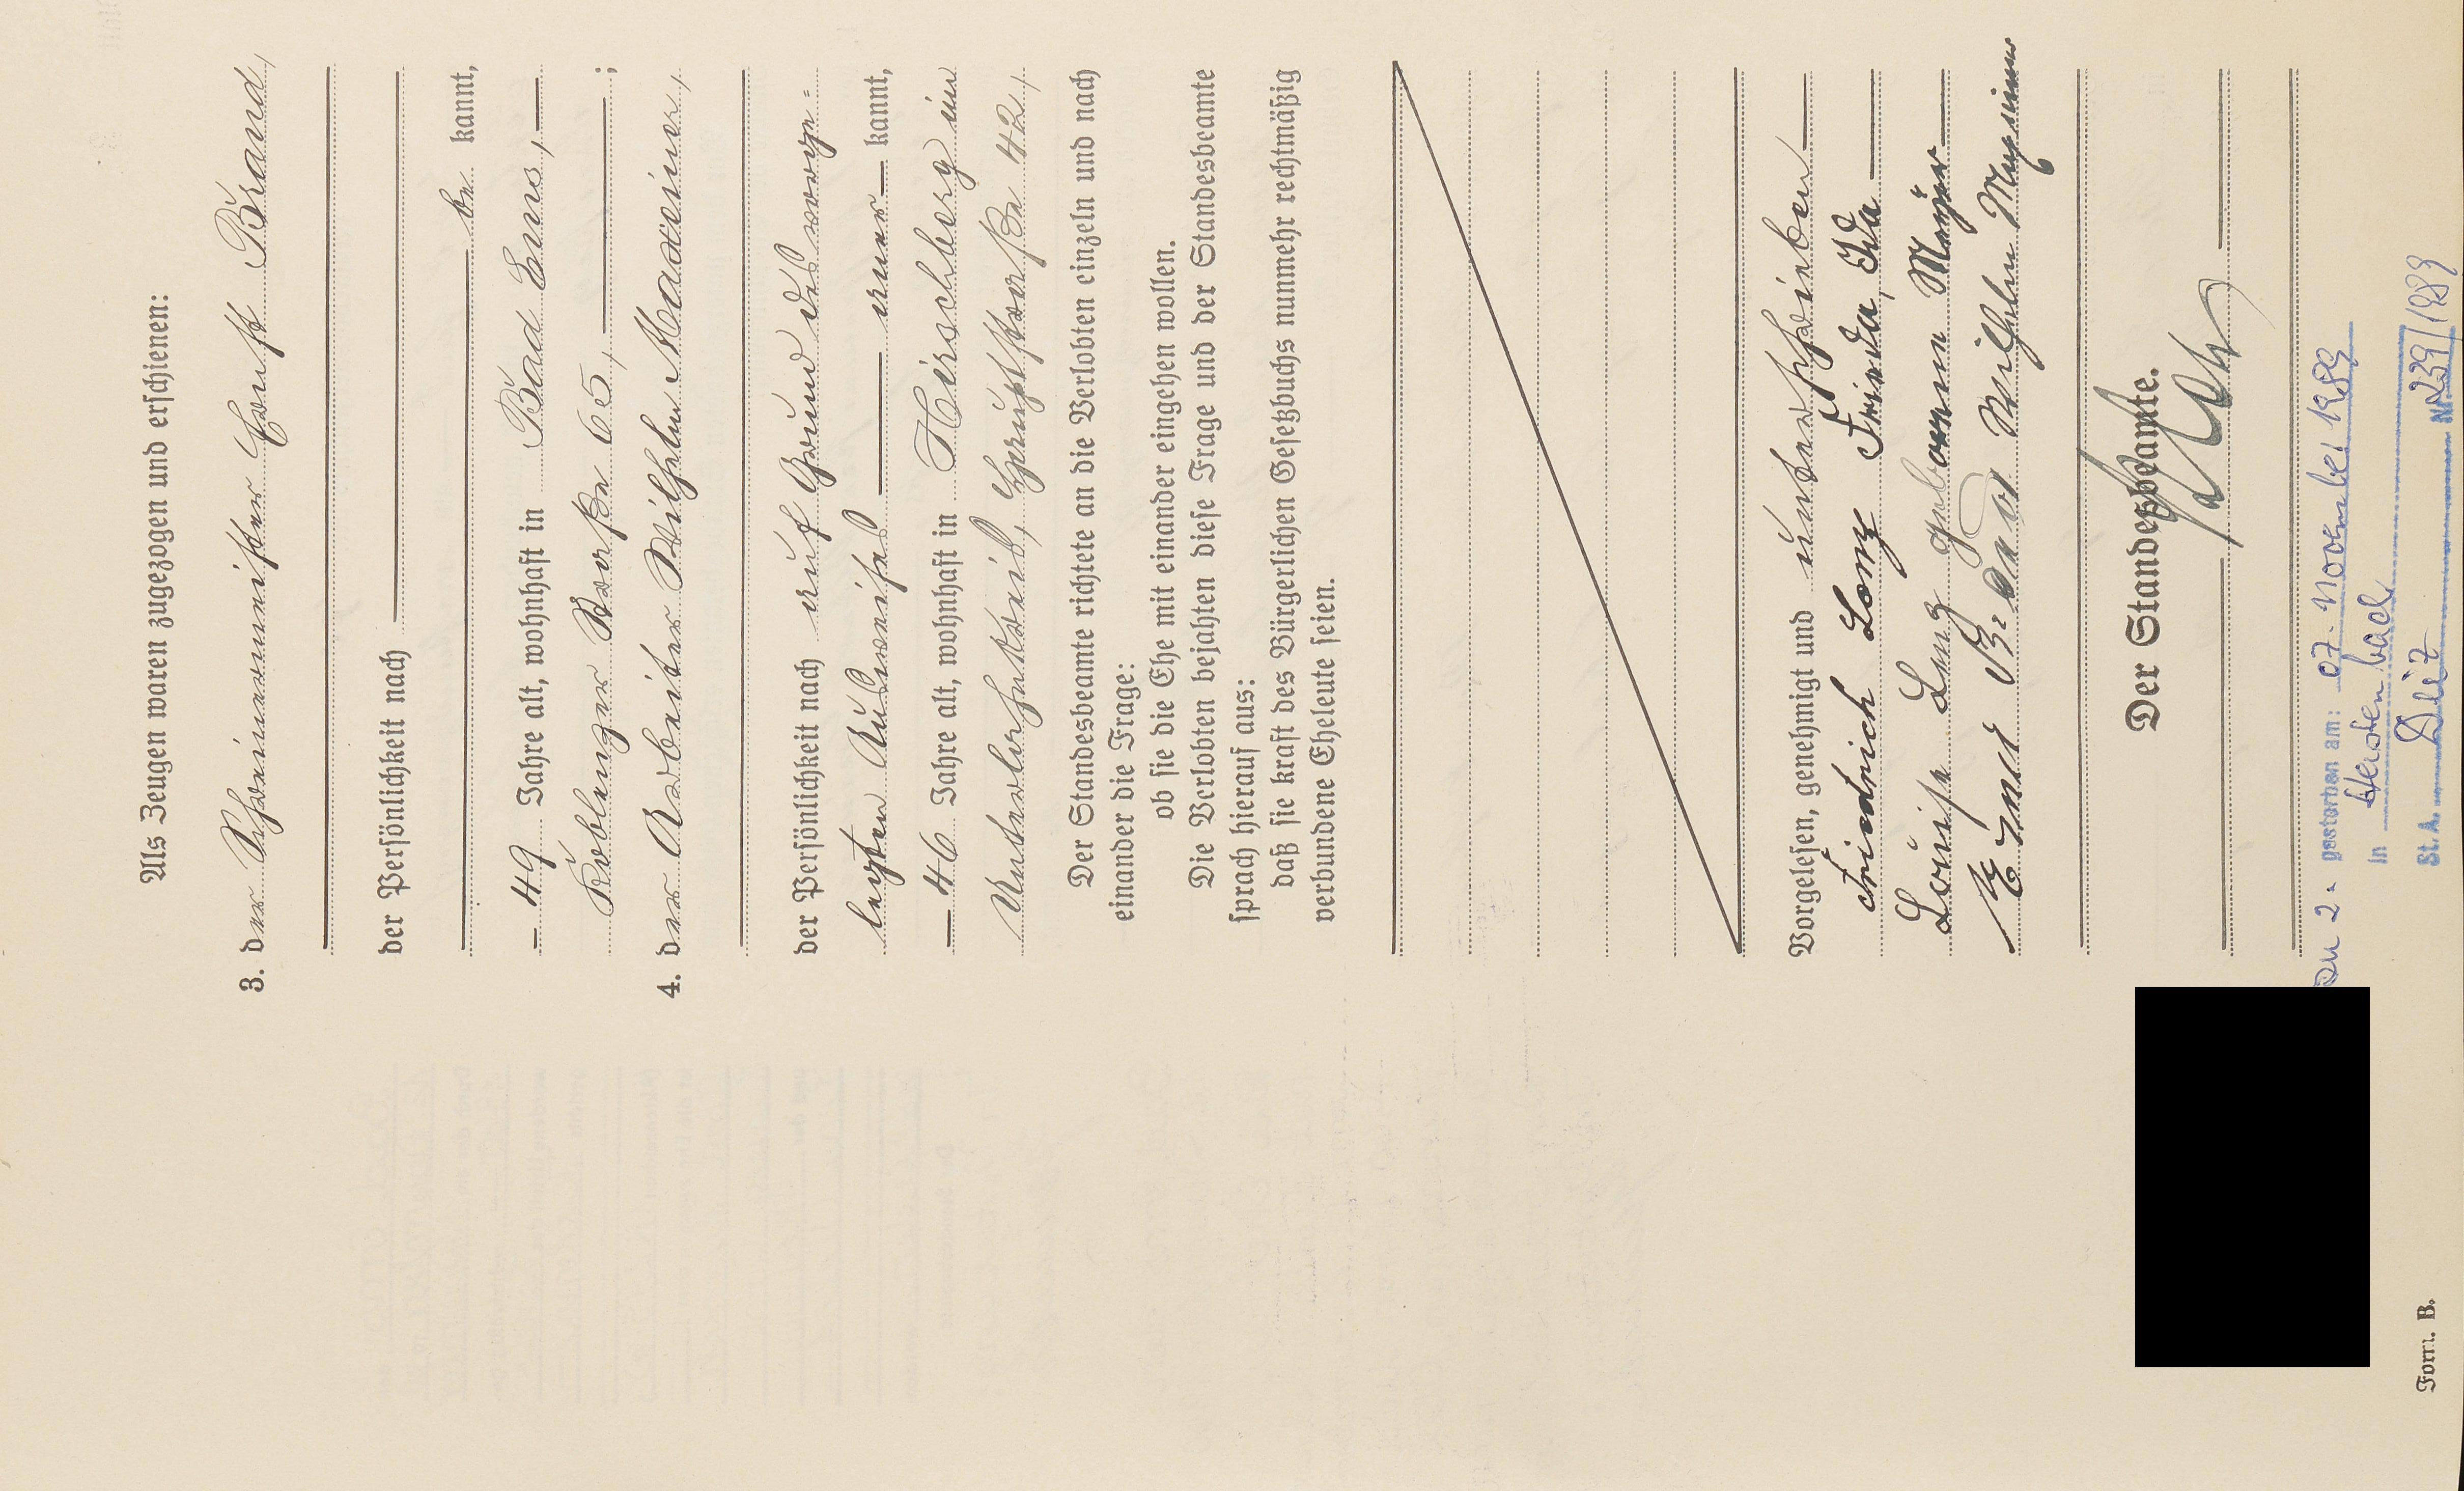 Als Zeugen waren zugezogen und erschienen:
3. der Schreinermeister Ernst Brand,
der Persönlichkeit nach
be kannt,
49 Jahre alt, wohnhaft in Bad Ems,
Koblenzer Straße 65, ;
4. der Arbeiter Wilhelm Maxeiner,
der Persönlichkeit nach auf Grund des vorge=
legten Ausweises aner kannt,
46 Jahre alt, wohnhaft in Hirschberg im
Unterlahnkreis, Hauptstraße 42,
Der Standesbeamte richtete an die Verlobten einzeln und nach
einander die Frage:
ob sie die Ehe mit einander eingehen wollen.
Die Verlobten bejahten diese Frage und der Standesbeamte
sprach hierauf aus:
daß sie kraft des Bürgerlichen Gesetzbuchs nunmehr rechtmäßig
verbundene Eheleute seien.
Vorgelesen, genehmigt und unterschrieben
Friedrich Lotz Frieda, Ida
Louise Lotz geborene Meyer
Ernst Brand Wilhelm Maxeiner
Der Standesbeamte.
Zu 2. gestorben am: 07. November 1989
in Heistenbach
St. A. Diez Nr. 239/1989
Form. B.